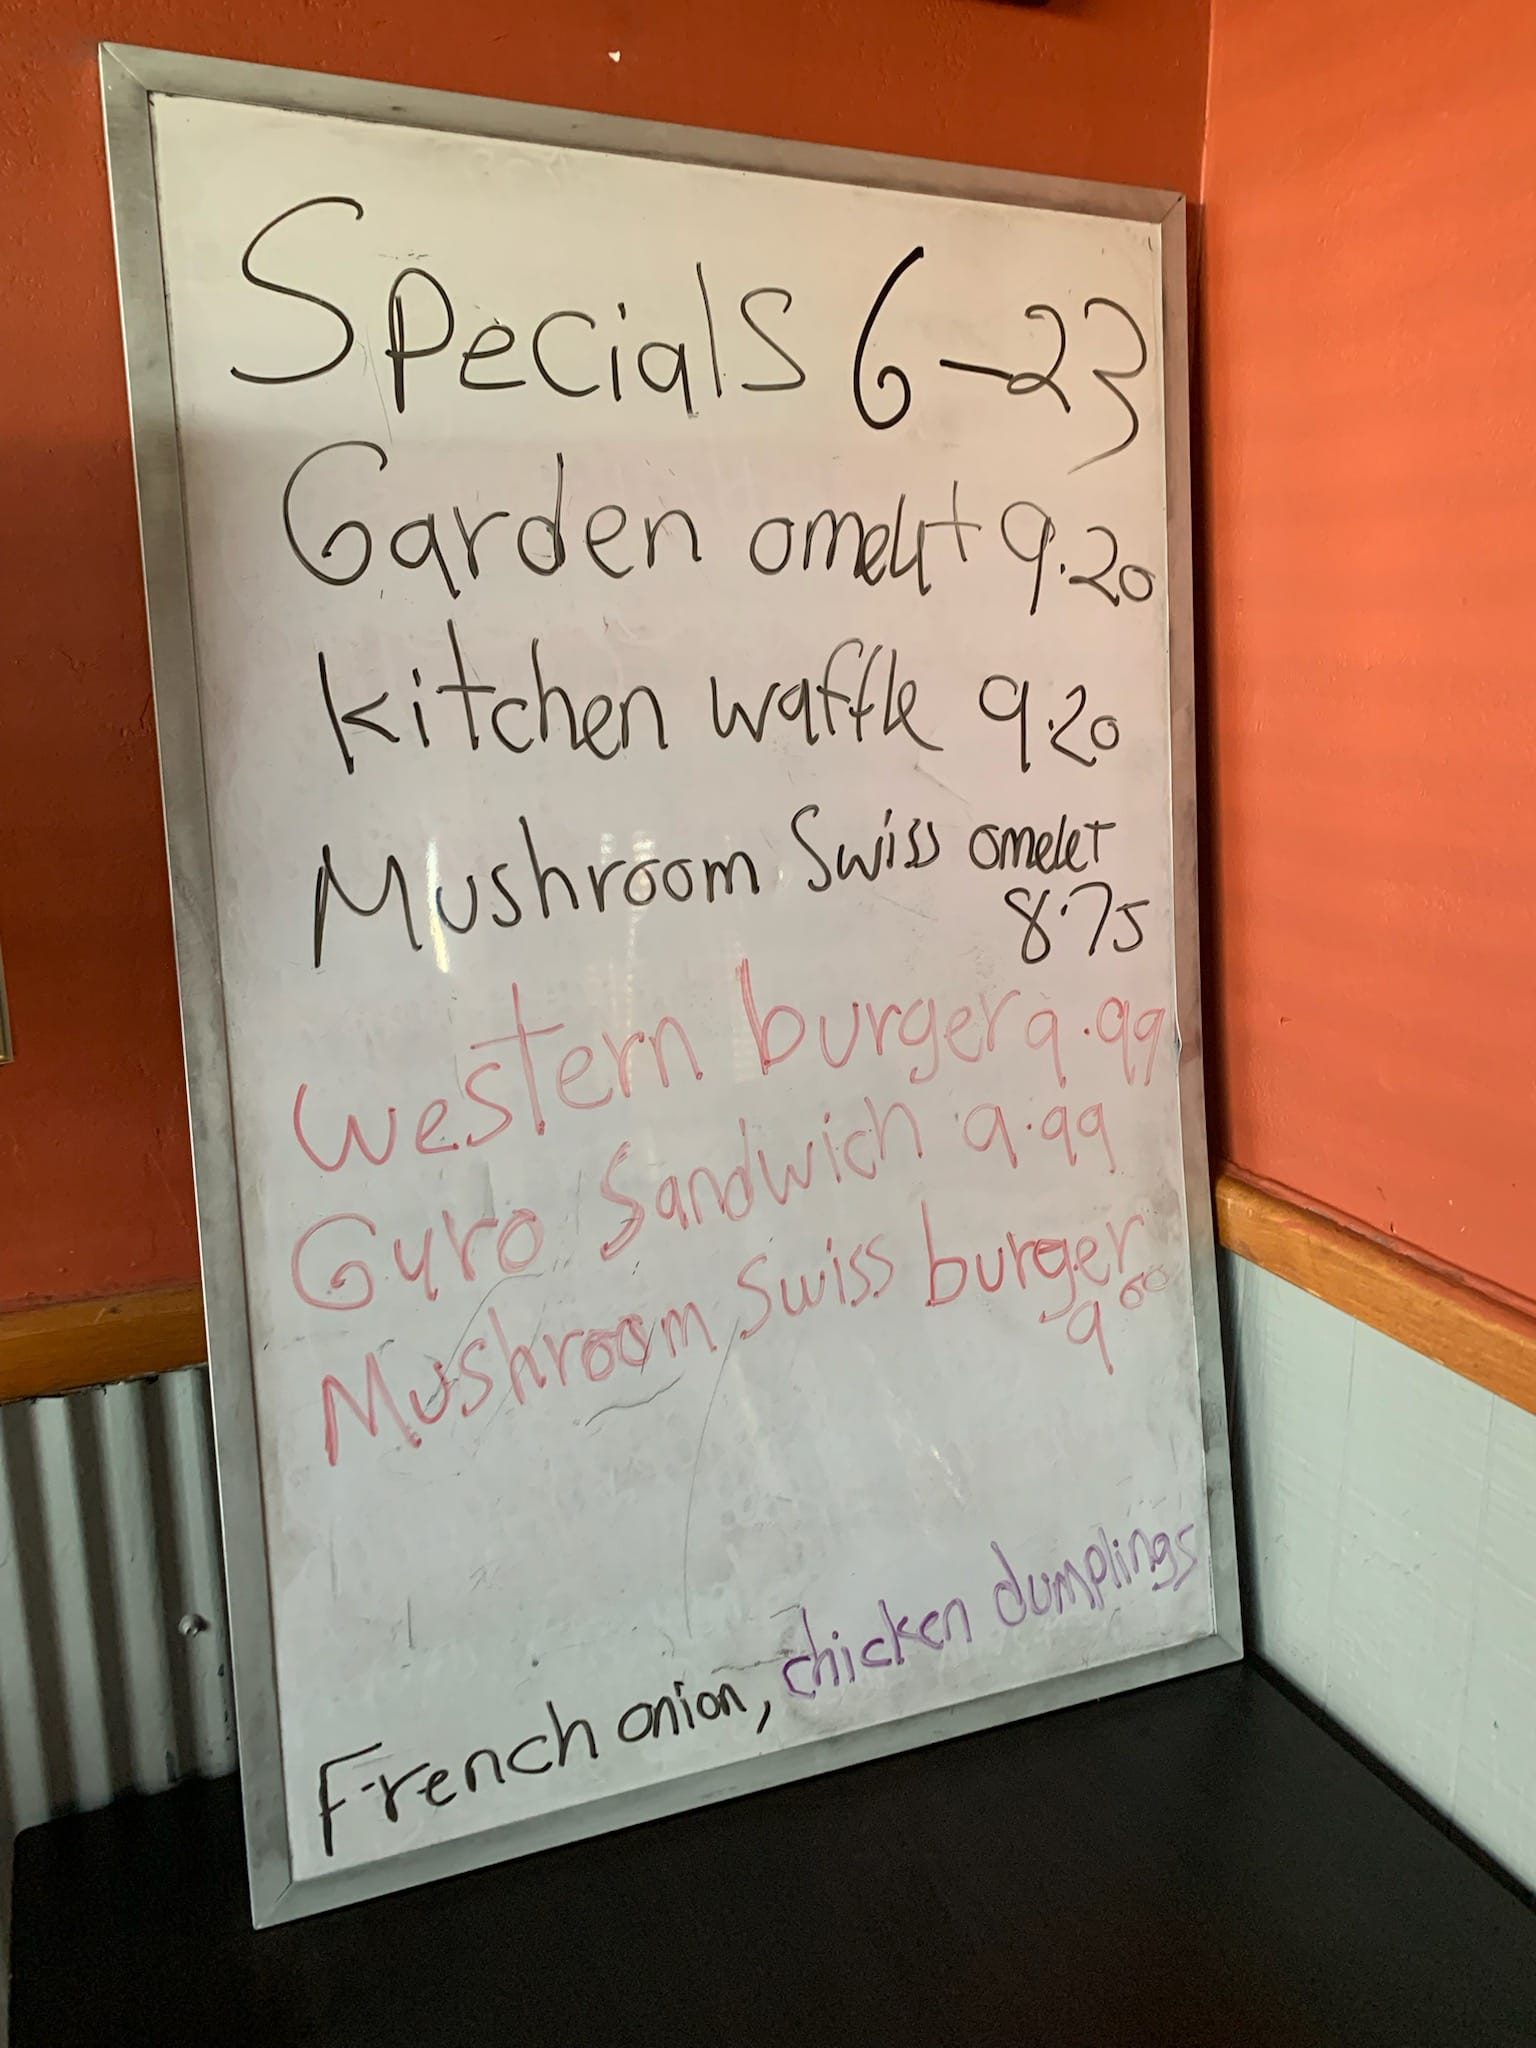 Specials 6-23
Garden omelet 9.20
Kitchen waffle 9.20
Mushroom Swiss omelet
8.75
Western burger 9.99
Gyro Sandwich 9.99
Mushroom Swiss burger
9.00
French onion, chicken dumplings